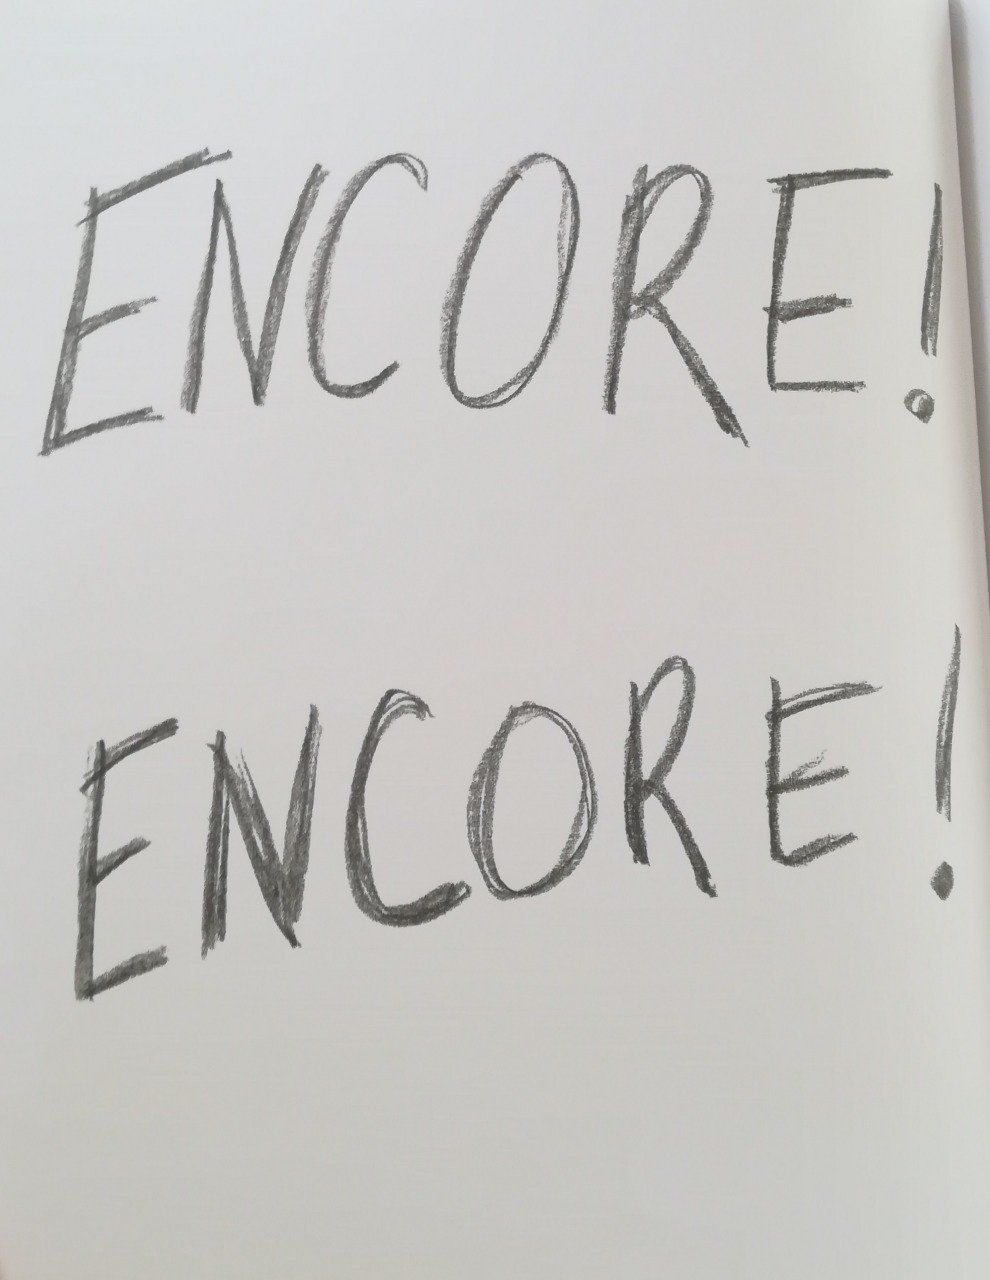 ENCORE!
ENCORE!